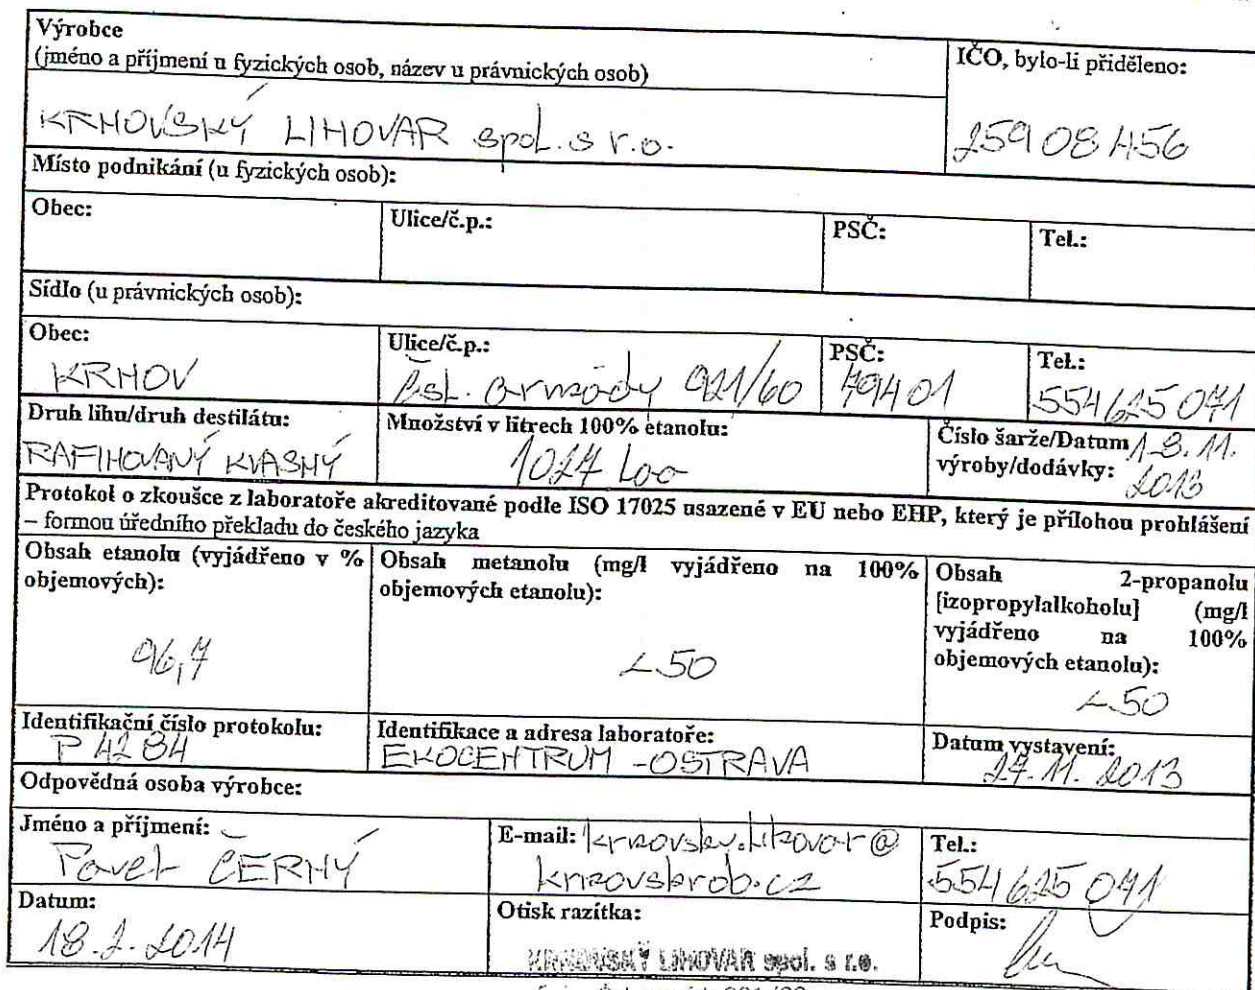 Výrobce
(jméno a příjmení u fyzických osob, název u právnických osob)
IČO, bylo-li přiděleno:
KRNOVSKÝ LIHOVAR spol. s r.o.
25908456
Místo podnikání (u fyzických osob):
Obec:
Ulice/č.p.:
PSČ:
Tel.:
Sídlo (u právnických osob):
Obec:
KRNOV
Ulice/č.p.:
Čsl. armády 921/60
PSČ:
79401
Tel.:
554625071
Druh lihu/druh destilátu:
RAFINOVANÝ KVASNÝ
Množství v litrech 100% etanolu:
1027 laa
Číslo šarže/Datum 1-8.11.
výroby/dodávky: 2013
Protokol o zkoušce z laboratoře akreditované podle ISO 17025 usazené v EU nebo EHP, který je přílohou prohlášení
– formou úředního překladu do českého jazyka
Obsah etanolu (vyjádřeno v %
objemových):
96,7
Obsah metanolu (mg/l vyjádřeno na 100%
objemových etanolu):
<50
Obsah 2-propanolu
[izopropylalkoholu] (mg/l
vyjádřeno na 100%
objemových etanolu):
<50
Identifikační číslo protokolu:
P 4284
Identifikace a adresa laboratoře:
EKOCENTRUM - OSTRAVA
Datum vystavení:
27.11.2013
Odpovědná osoba výrobce:
Jméno a příjmení:
Pavel ČERNÝ
E-mail: krnovsky.lihovar@
Tel.:
554625071
Datum:
18.2.2014
Otisk razítka:
KRNOVSKÝ LIHOVAR spol. s r.o.
Podpis: